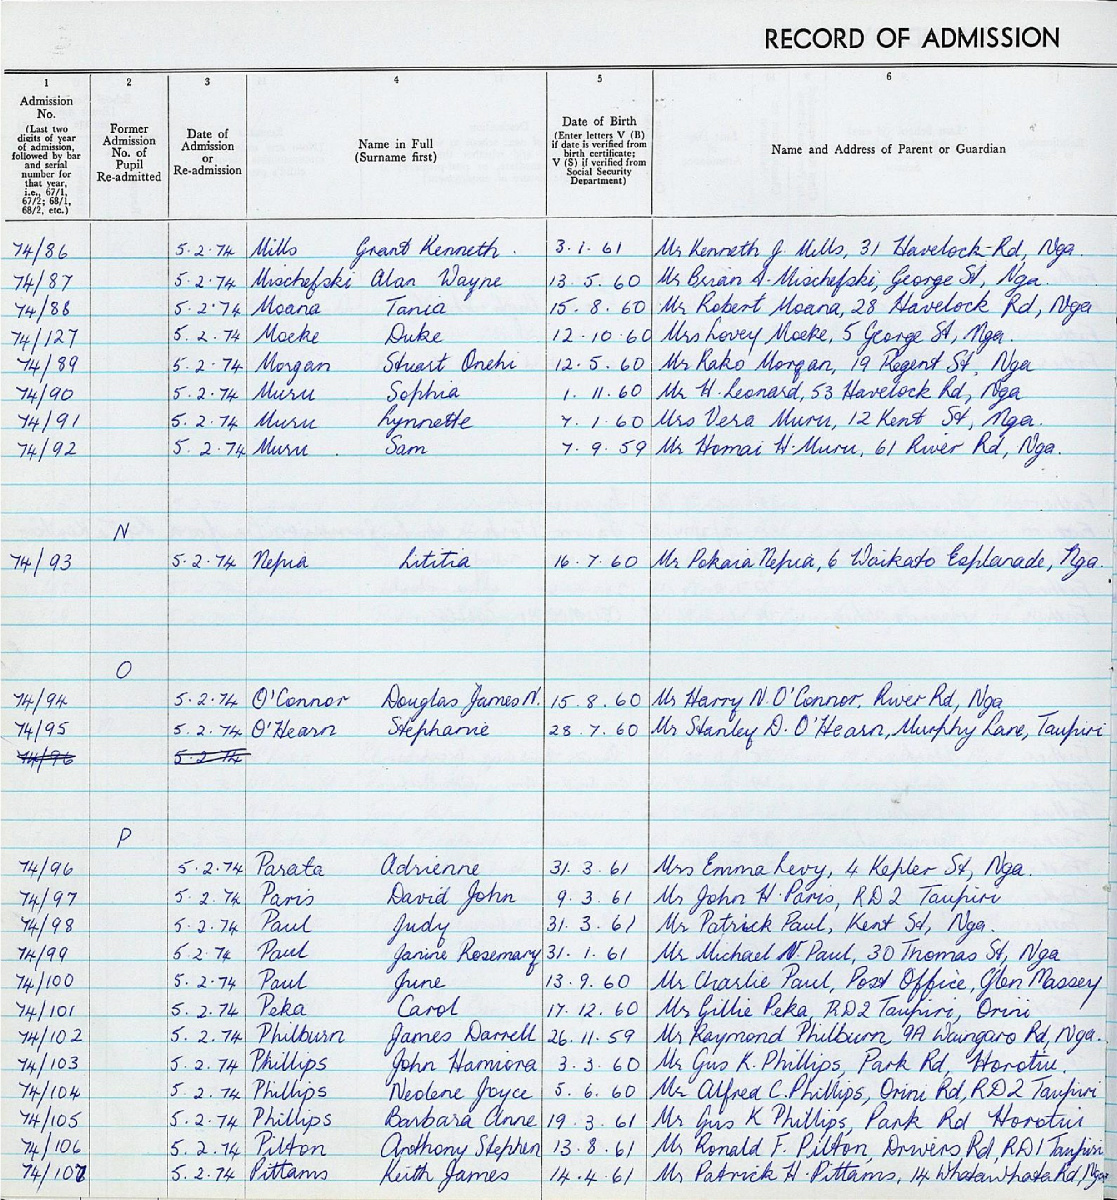 RECORD OF ADMISSION
1 2 3 4 5 6
Admission No. (Last two digits of year of admission, followed by bar and serial number for that year, i.e., 67/1, 67/2; 68/1, 68/2, etc.)
Former Admission No. of Pupil Re-admitted
Date of Admission or Re-admission
Name in Full (Surname first)
Date of Birth (Enter letters V (B) if date is verified from birth certificate; V (S) if verified from Social Security Department)
Name and Address of Parent or Guardian
74/86 5.2.74 Mills Grant Kenneth. 3.1.61 Mr Kenneth J. Mills, 31 Havelock Rd, Nga.
74/87 5.2.74 Mischefski Alan Wayne 13.5.60 Mr Brian A. Mischefski, George St, Nga.
74/88 5.2.74 Moana Tania 15.8.60 Mr Robert Moana, 28 Havelock Rd, Nga
74/127 5.2.74 Moeke Duke 12.10.60 Mrs Lovey Moeke, 5 George St, Nga.
74/89 5.2.74 Morgan Stuart Onehi 12.5.60 Mr Rako Morgan, 19 Regent St, Nga
74/90 5.2.74 Muru Sophia 1.11.60 Mr H. Leonard, 53 Havelock Rd, Nga
74/91 5.2.74 Muru Lynnette 7.1.60 Mrs Vera Muru, 12 Kent St, Nga.
74/92 5.2.74 Muru Sam 7.9.59 Mr Homai H. Muru, 61 River Rd, Nga.
N
74/93 5.2.74 Nepia Lititia 16.7.60 Mr Pokaia Nepia, 6 Waikato Esplanade, Nga.
O
74/94 5.2.74 O'Connor Douglas James N. 15.8.60 Mr Harry N. O'Connor, River Rd, Nga
74/95 5.2.74 O'Hearn Stephanie 28.7.60 Mr Stanley D. O'Hearn, Murphy Lane, Taupiri
74/96 5.2.74
P
74/96 5.2.74 Parata Adrienne 31.3.61 Mrs Emma Levy, 4 Kepler St, Nga.
74/97 5.2.74 Paris David John 9.3.61 Mr John H. Paris, RD2 Taupiri
74/98 5.2.74 Paul Judy 31.3.61 Mr Patrick Paul, Kent St, Nga.
74/99 5.2.74 Paul Janine Rosemary 31.1.61 Mr Michael N. Paul, 30 Thomas St, Nga
74/100 5.2.74 Paul June 13.9.60 Mr Charlie Paul, Post Office, Glen Massey
74/101 5.2.74 Peka Carol 17.12.60 Mr Gillie Peka, RD2 Taupiri, Orini
74/102 5.2.74 Philburn James Darrell 26.11.59 Mr Raymond Philburn, 9A Waingaro Rd, Nga.
74/103 5.2.74 Phillips John Hamiora 3.3.60 Mr Gus K. Phillips, Park Rd, Horotiu.
74/104 5.2.74 Phillips Neolene Joyce 5.6.60 Mr Alfred C. Phillips, Orini Rd, RD2 Taupiri
74/105 5.2.74 Phillips Barbara Anne 19.3.61 Mr Gus K Phillips, Park Rd Horotiu
74/106 5.2.74 Pilton Anthony Stephen 13.8.61 Mr Ronald F. Pilton, Rd, RD1 Taupiri
74/107 5.2.74 Pittams Keith James 14.4.61 Mr Patrick H. Pittams, 14 Whatawhata Rd, Nga